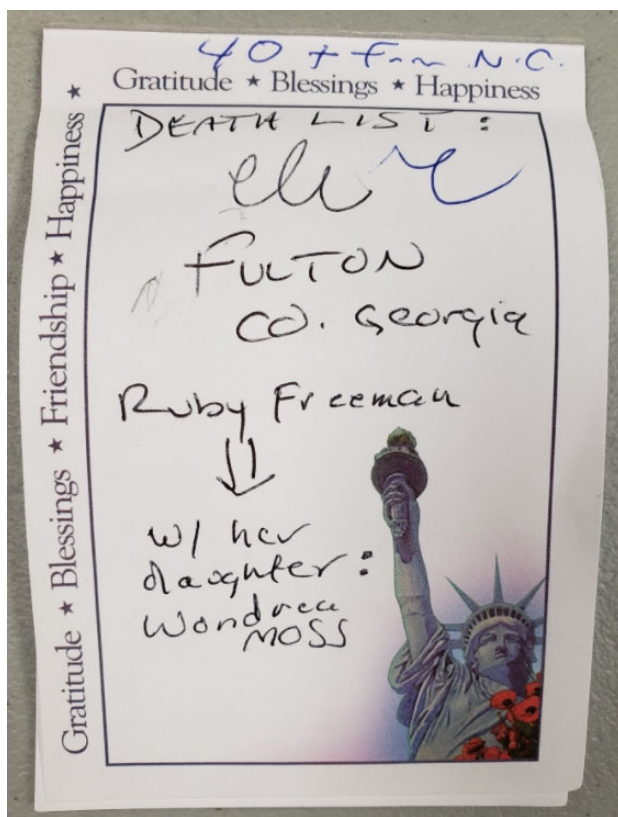 40 + Fam N.C.
Gratitude ★ Blessings ★ Happiness
Gratitude ★ Blessings ★ Friendship ★ Happiness ★
DEATH LIST :
FULTON
CO. Georgia
Ruby Freeman
w/ her
daughter :
Wandrea
MOSS